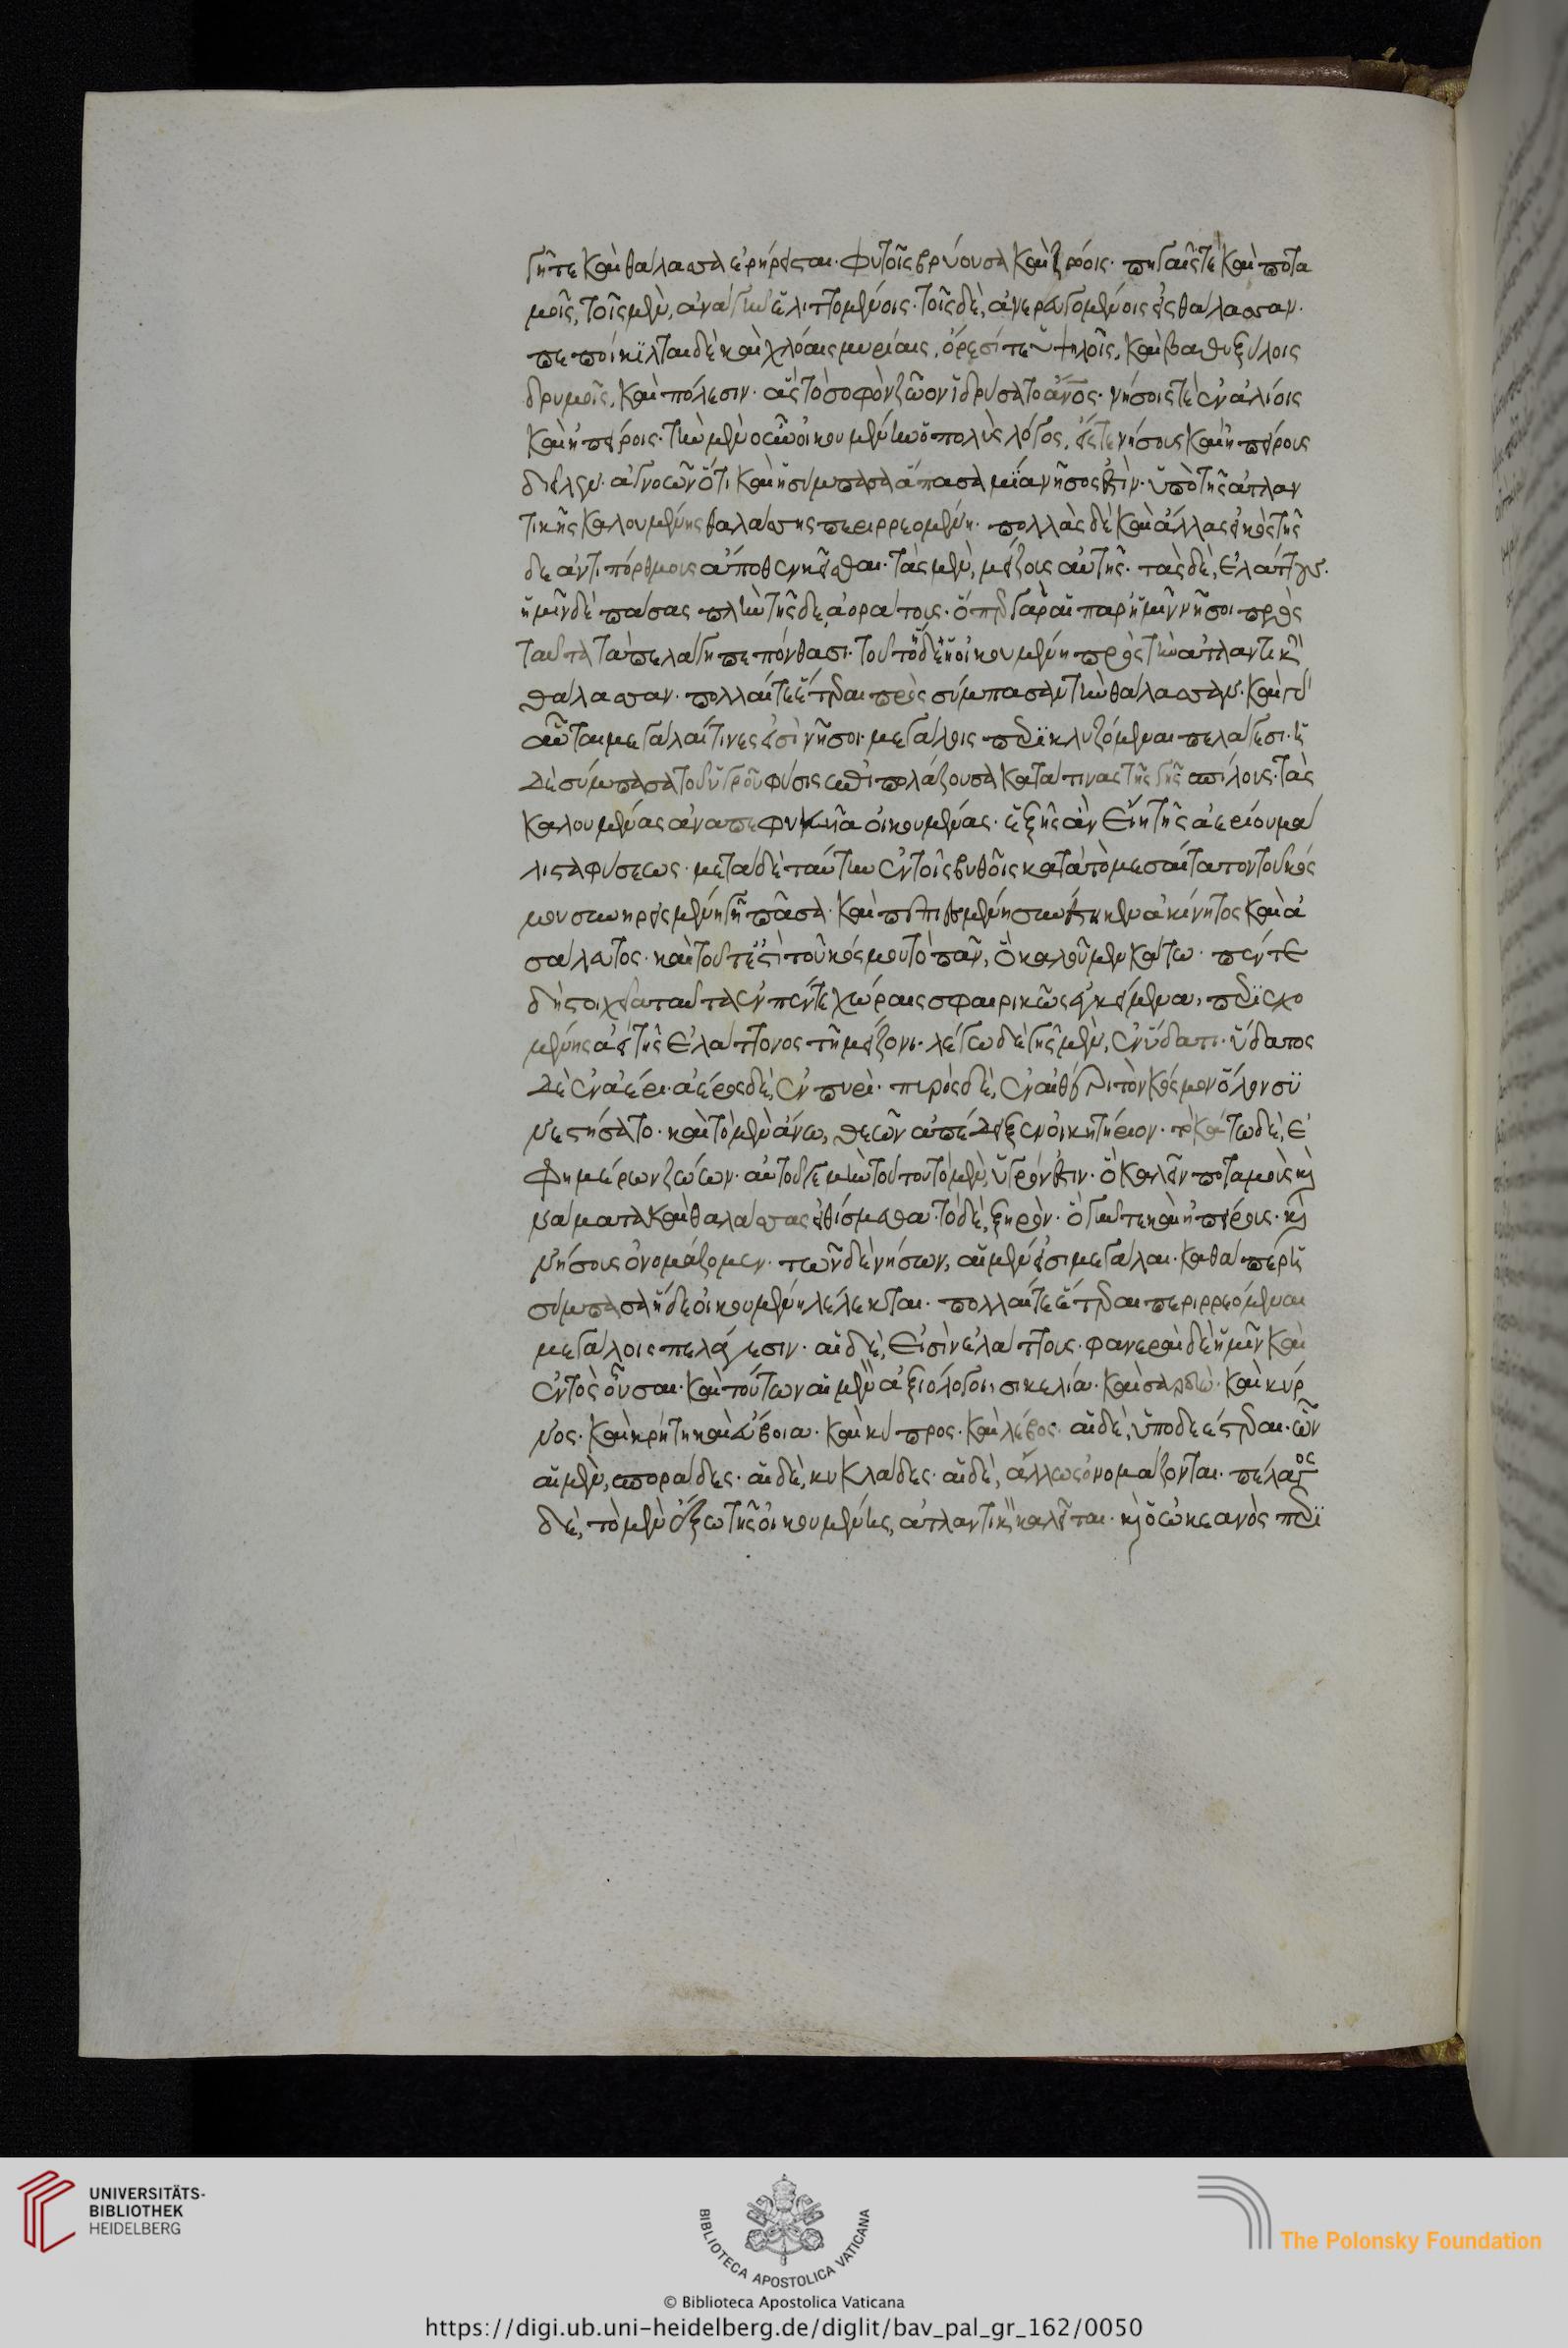 γῆ τε καὶ θάλασσα ἐρήρεισται· φυτοῖς βρύουσα καὶ ζώοις· πηγαῖς τὲ καὶ ποτα
μοῖς, τοῖς μὲν, ἀνὰ γῆν ἑλιττομένοις· τοῖς δὲ, ἀνερευγομένοις εἰς θάλασσαν·
πεποίκιλται δὲ καὶ χλόαις μυρίαις, ὄρεσί τε ὑψηλοῖς, καὶ βαθυξύλοις
δρυμοῖς, καὶ πόλεσιν· ἃς τὸ σοφὸν ζῶον ἱδρύσατο ἄνος· νήσοις τὲ ἐναλίοις
καὶ ἠπείροις· τὴν μὲν οὖν οἰκουμένην ὁ πολὺς λόγος, εἴς τε νήσους καὶ ἠπείρους
διεῖλεν· ἀγνοῶν ὅτι καὶ ἡ σύμπασα ἅπασα μία νῆσος ἐστὶν· ὑπὸ τῆς ἀτλαν
τικῆς καλουμένης θαλάσσης περιρρεομένη· πολλὰς δὲ καὶ ἄλλας εἰκὸς τῆς
δε ἀντιπόρθμοις ἄποθεν κεῖσθαι· τὰς μὲν, μείζους αὐτῆς· τὰς δὲ, ἐλάττους·
ἡμῖν δὲ πάσας πλὴν τῆσδε ἀοράτους· ὅπερ γὰρ αἱ παρ' ἡμῖν νῆσοι πρὸς
ταῦτα τὰ πελάγη πεπόνθασι· τοῦτο ἥδε ἡ οἰκουμένη πρὸς τὴν ἀτλαντικὴν
θάλασσαν· πολλαί τε ἕτεραι πρὸς σύμπασαν τὴν θάλασσαν· καὶ γὰρ
αὗται μεγάλαι τινες εἰσὶ νῆσοι· μεγάλοις περικλυζόμεναι πελάγεσι· ἡ
δὲ σύμπασα τοῦ ὑγροῦ φύσις ἐπιπολάζουσα κατά τινας τῆς γῆς σπίλους· τὰς
καλουμένας ἀναπεφυκῖα οἰκουμένας· ἑξῆς ἂν εἴη τῆς ἀερίου μά
λιστα φύσεως· μετὰ δὲ ταύτην ἐν τοῖς βυθοῖς κατὰ τὸ μεσαίτατον τοῦ κός
μου συνηρεισμένη γῆ πᾶσα· καὶ πεπιεσμένη συνέστηκεν ἀκίνητος καὶ ἀ
σάλευτος· καὶ τοῦτ' ἐστὶ τοῦ κόσμου τὸ πᾶν, ὃ καλοῦμεν κάτω· πέντε
δὴ στοιχεῖα ταῦτα ἐν πέντε χώραις σφαιρικῶς ἐγκείμενα, περιεχο
μένης ἀεὶ τῆς ἐλάττονος τῇ μείζονι· λέγω δὲ γῆς μὲν, ἐν ὕδατι· ὕδατος
δὲ ἐν ἀέρι· ἀέρος δὲ, ἐν πυρὶ· πυρὸς δὲ, ἐν αἰθέρι τὸν κόσμον ὅλον συ
νεστήσατο· καὶ τὸ μὲν ἄνω, θεῶν ἀπέδειξεν οἰκητήριον· τὸ κάτω δὲ, ἐ
φημέρων ζώων· αὐτοῦ γε μὴν τούτου τὸ μὲν, ὑγρόν ἐστιν· ὃ καλεῖν ποταμοὺς καὶ
νάματα καὶ θαλάσσας εἰθίσμεθα· τὸ δὲ, ξηρὸν· ὃ γῆν τε καὶ ἠπείρους· καὶ
νήσους ὀνομάζομεν· τῶν δὲ νήσων, αἱ μὲν εἰσι μεγάλαι· καθάπερ ἡ
σύμπασα ἥδε οἰκουμένη λέλεκται· πολλαί τε ἕτεραι περιρρεόμεναι
μεγάλοις πελάγεσιν· αἱ δὲ, εἰσὶν ἐλάττους· φανεραὶ δὲ ἡμῖν καὶ
ἐντὸς οὖσαι· καὶ τούτων αἱ μὲν ἀξιόλογοι, σικελία· καὶ σαρδὼ· καὶ κύρ
νος· καὶ κρήτη καὶ εὔβοια· καὶ κύπρος· καὶ λέσβος· αἱ δὲ, ὑποδεέστεραι· ὧν
αἱ μὲν, σποράδες· αἱ δὲ, κυκλάδες· αἱ δὲ, ἄλλως ὀνομάζονται· πέλαγος
δὲ, τὸ μὲν ἔξω τῆς οἰκουμένης, ἀτλαντικὸν καλεῖται· καὶ ὁ ὠκεανὸς περι
UNIVERSITÄTS-
BIBLIOTHEK
HEIDELBERG
BIBLIOTECA APOSTOLICA VATICANA
The Polonsky Foundation
© Biblioteca Apostolica Vaticana
https://digi.ub.uni-heidelberg.de/diglit/bav_pal_gr_162/0050